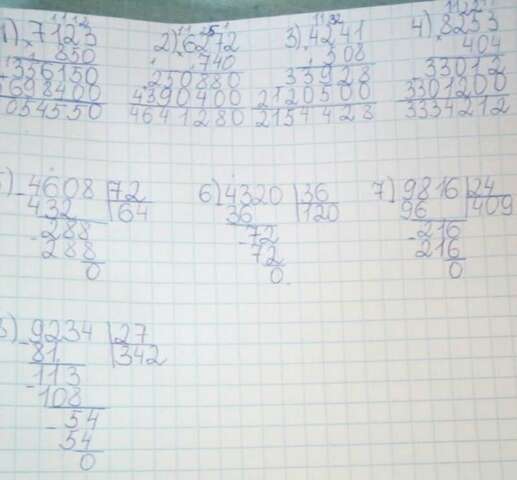 1) 7123 2) 6272 3) 4241 4) 8253
× 850 × 740 × 508 × 404
356150 250880 33928 33012
5698400 4390400 2120500 3301200
6054550 4641280 2154428 3334212
5) 4608 | 72 6) 4320 | 36 7) 9816 | 24
432 64 36 120 96 409
- 288 - 72 - 216
288 72 216
0 0 0
8) 9234 | 27
81 342
- 113
108
- 54
54
0